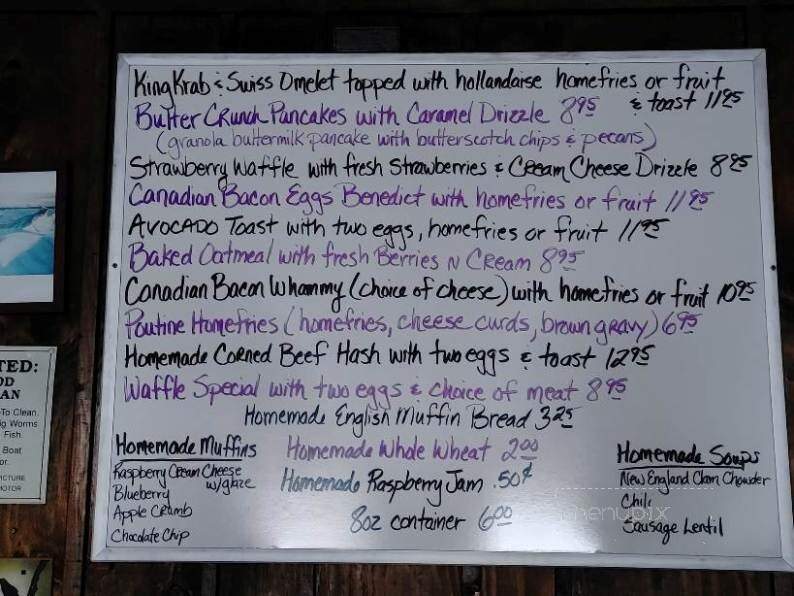 King Krab & Swiss Omelet topped with hollandaise homefries or fruit
& toast 11.95
Butter Crunch Pancakes with Caramel Drizzle 8.95
(granola buttermilk pancake with butterscotch chips & pecans)
Strawberry Waffle with fresh Strawberries & Cream Cheese Drizzle 8.95
Canadian Bacon Eggs Benedict with homefries or fruit 11.95
AVOCADO Toast with two eggs, homefries or fruit 11.95
Baked Oatmeal with fresh Berries N Cream 8.95
Canadian Bacon Whammy (choice of cheese) with homefries or fruit 10.95
Poutine Homefries (homefries, cheese curds, brown gravy) 6.95
Homemade Corned Beef Hash with two eggs & toast 12.95
Waffle Special with two eggs & choice of meat 8.95
Homemade English Muffin Bread 3.25
Homemade Whole Wheat 2.00
Homemade Raspberry Jam .50¢
8oz container 6.00
Homemade Muffins
Raspberry Cream Cheese
w/glaze
Blueberry
Apple Crumb
Chocolate Chip
Homemade Soups
New England Clam Chowder
Chili
Sausage Lentil
menupix
TED:
OD
AN
To Clean.
ig Worms
Fish
Boat
or.
ICTURE
MOTOR